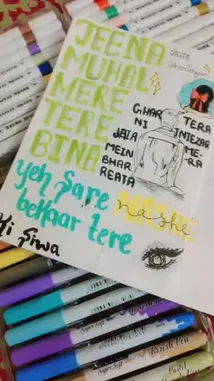 JEENA
MUHAL
MERE
TERE
BINA
G.HAR
NI
JATA
MEIN
BHAR
REATA
TERA
INTEZAR
ME-
RA
Yeh Sare
nashe
beKaar tere
Ki Siwa
Brush Pen